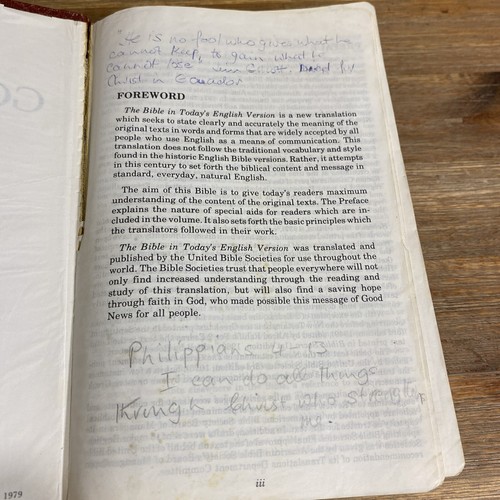 "He is no fool who gives what he
cannot keep, to gain what he
cannot lose Jim Elliot. Died for
Christ in Ecuador
FOREWORD
The Bible in Today's English Version is a new translation
which seeks to state clearly and accurately the meaning of the
original texts in words and forms that are widely accepted by all
people who use English as a means of communication. This
translation does not follow the traditional vocabulary and style
found in the historic English Bible versions. Rather, it attempts
in this century to set forth the biblical content and message in
standard, everyday, natural English.
The aim of this Bible is to give today's readers maximum
understanding of the content of the original texts. The Preface
explains the nature of special aids for readers which are in-
cluded in the volume. It also sets forth the basic principles which
the translators followed in their work.
The Bible in Today's English Version was translated and
published by the United Bible Societies for use throughout the
world. The Bible Societies trust that people everywhere will not
only find increased understanding through the reading and
study of this translation, but will also find a saving hope
through faith in God, who made possible this message of Good
News for all people.
Philippians 4-13
I can do all things
through Christ who strengthens
me.
iii
1979